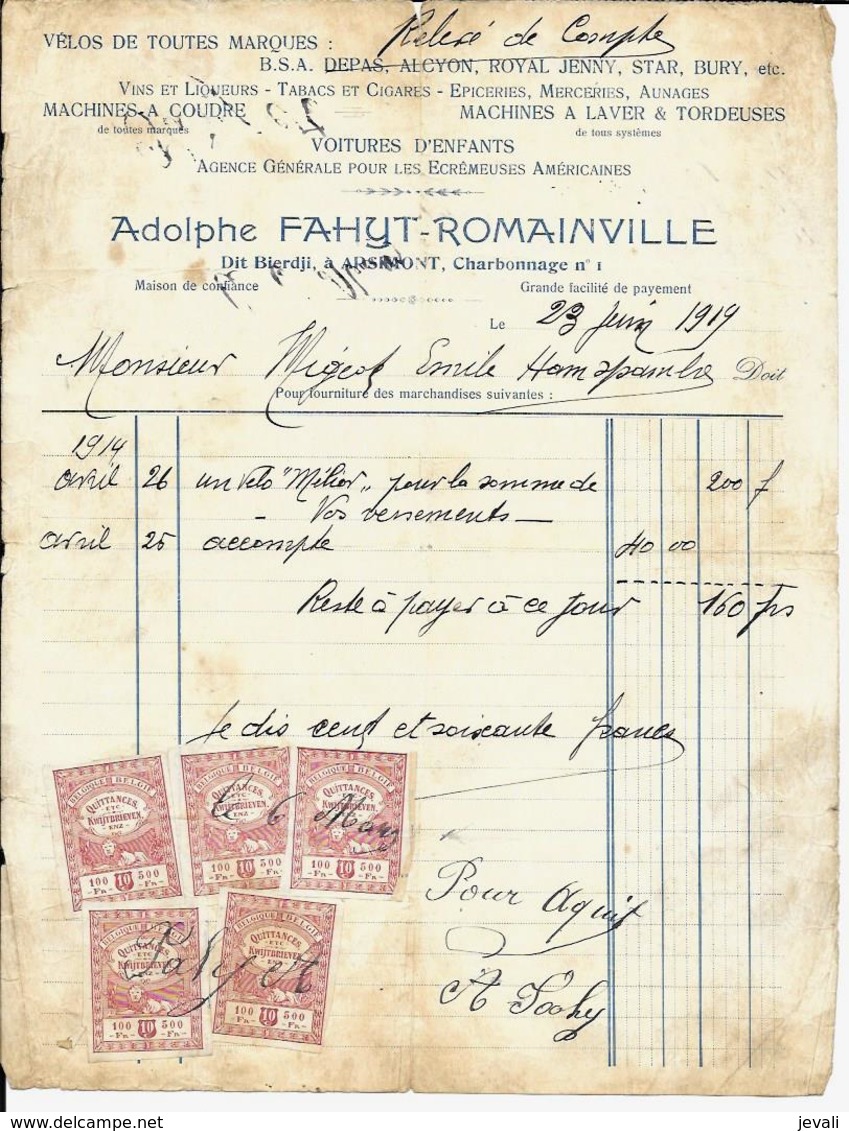 Relevé de Compte
VÉLOS DE TOUTES MARQUES :
B.S.A. DEPAS, ALCYON, ROYAL JENNY, STAR, BURY, etc.
VINS ET LIQUEURS - TABACS ET CIGARES - EPICERIES, MERCERIES, AUNAGES
MACHINES A COUDRE MACHINES A LAVER & TORDEUSES
de toutes marques de tous systèmes
VOITURES D'ENFANTS
AGENCE GÉNÉRALE POUR LES ECRÊMEUSES AMÉRICAINES
Adolphe FAHYT-ROMAINVILLE
Dit Bierdji, à ARSIMONT, Charbonnage n° 1
Maison de confiance Grande facilité de payement
Le 23 Juin 1919
Monsieur Migeot Emile Doit
Pour fourniture des marchandises suivantes :
1914
avril 26 un vélo pour la somme de 200 f
Vos versements
avril 25 accompte 40 00
Reste à payer à ce jour 160 frs
Je dis cent et soixante francs
BELGIQUE BELGIË
QUITTANCES
ETC
KWIJTBRIEVEN
ENZ
100 10 500
-FR- -FR-
BELGIQUE BELGIË
QUITTANCES
ETC
KWIJTBRIEVEN
ENZ
100 10 500
-FR- -FR-
BELGIQUE BELGIË
QUITTANCES
ETC
KWIJTBRIEVEN
ENZ
100 10 500
-FR- -FR-
Le 6 Mars
Pour aquit
BELGIQUE BELGIË
QUITTANCES
ETC
KWIJTBRIEVEN
ENZ
100 10 500
-FR- -FR-
BELGIQUE BELGIË
QUITTANCES
ETC
KWIJTBRIEVEN
ENZ
100 10 500
-FR- -FR-
jevali